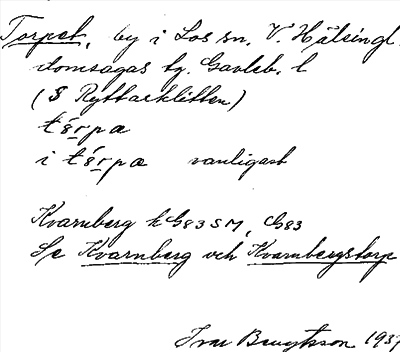 Torpet, by i Los sn, V. Hälsingl.
domsagas tg. Gävleb. l
(S Ryttarklitten)
tǿrpa
i tǿrpa vanligast
Kvarnberg k G83 SM, G83
Se Kvarnberg och Kvarnbergstorp
Ivar Bengtsson 1937